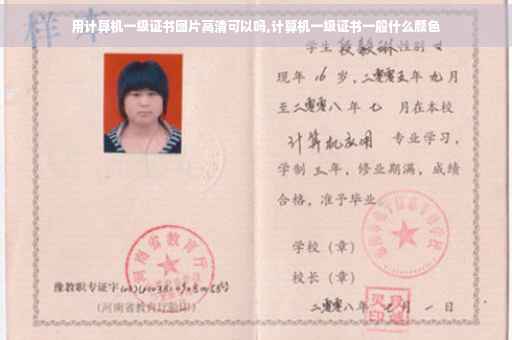 用计算机一级证书图片高清可以吗,计算机一级证书一般什么颜色
样本
学生 性别 女
现年 16 岁，二零零五年 九月
至二零零八年 七 月在本校
计算机应用 专业学习，
学制 三年，修业期满，成绩
合格，准予毕业。
学校（章）
校长（章）
河南省教育厅
豫教职专证字
（河南省教育厅验印）
二零零八年 七 月 一 日